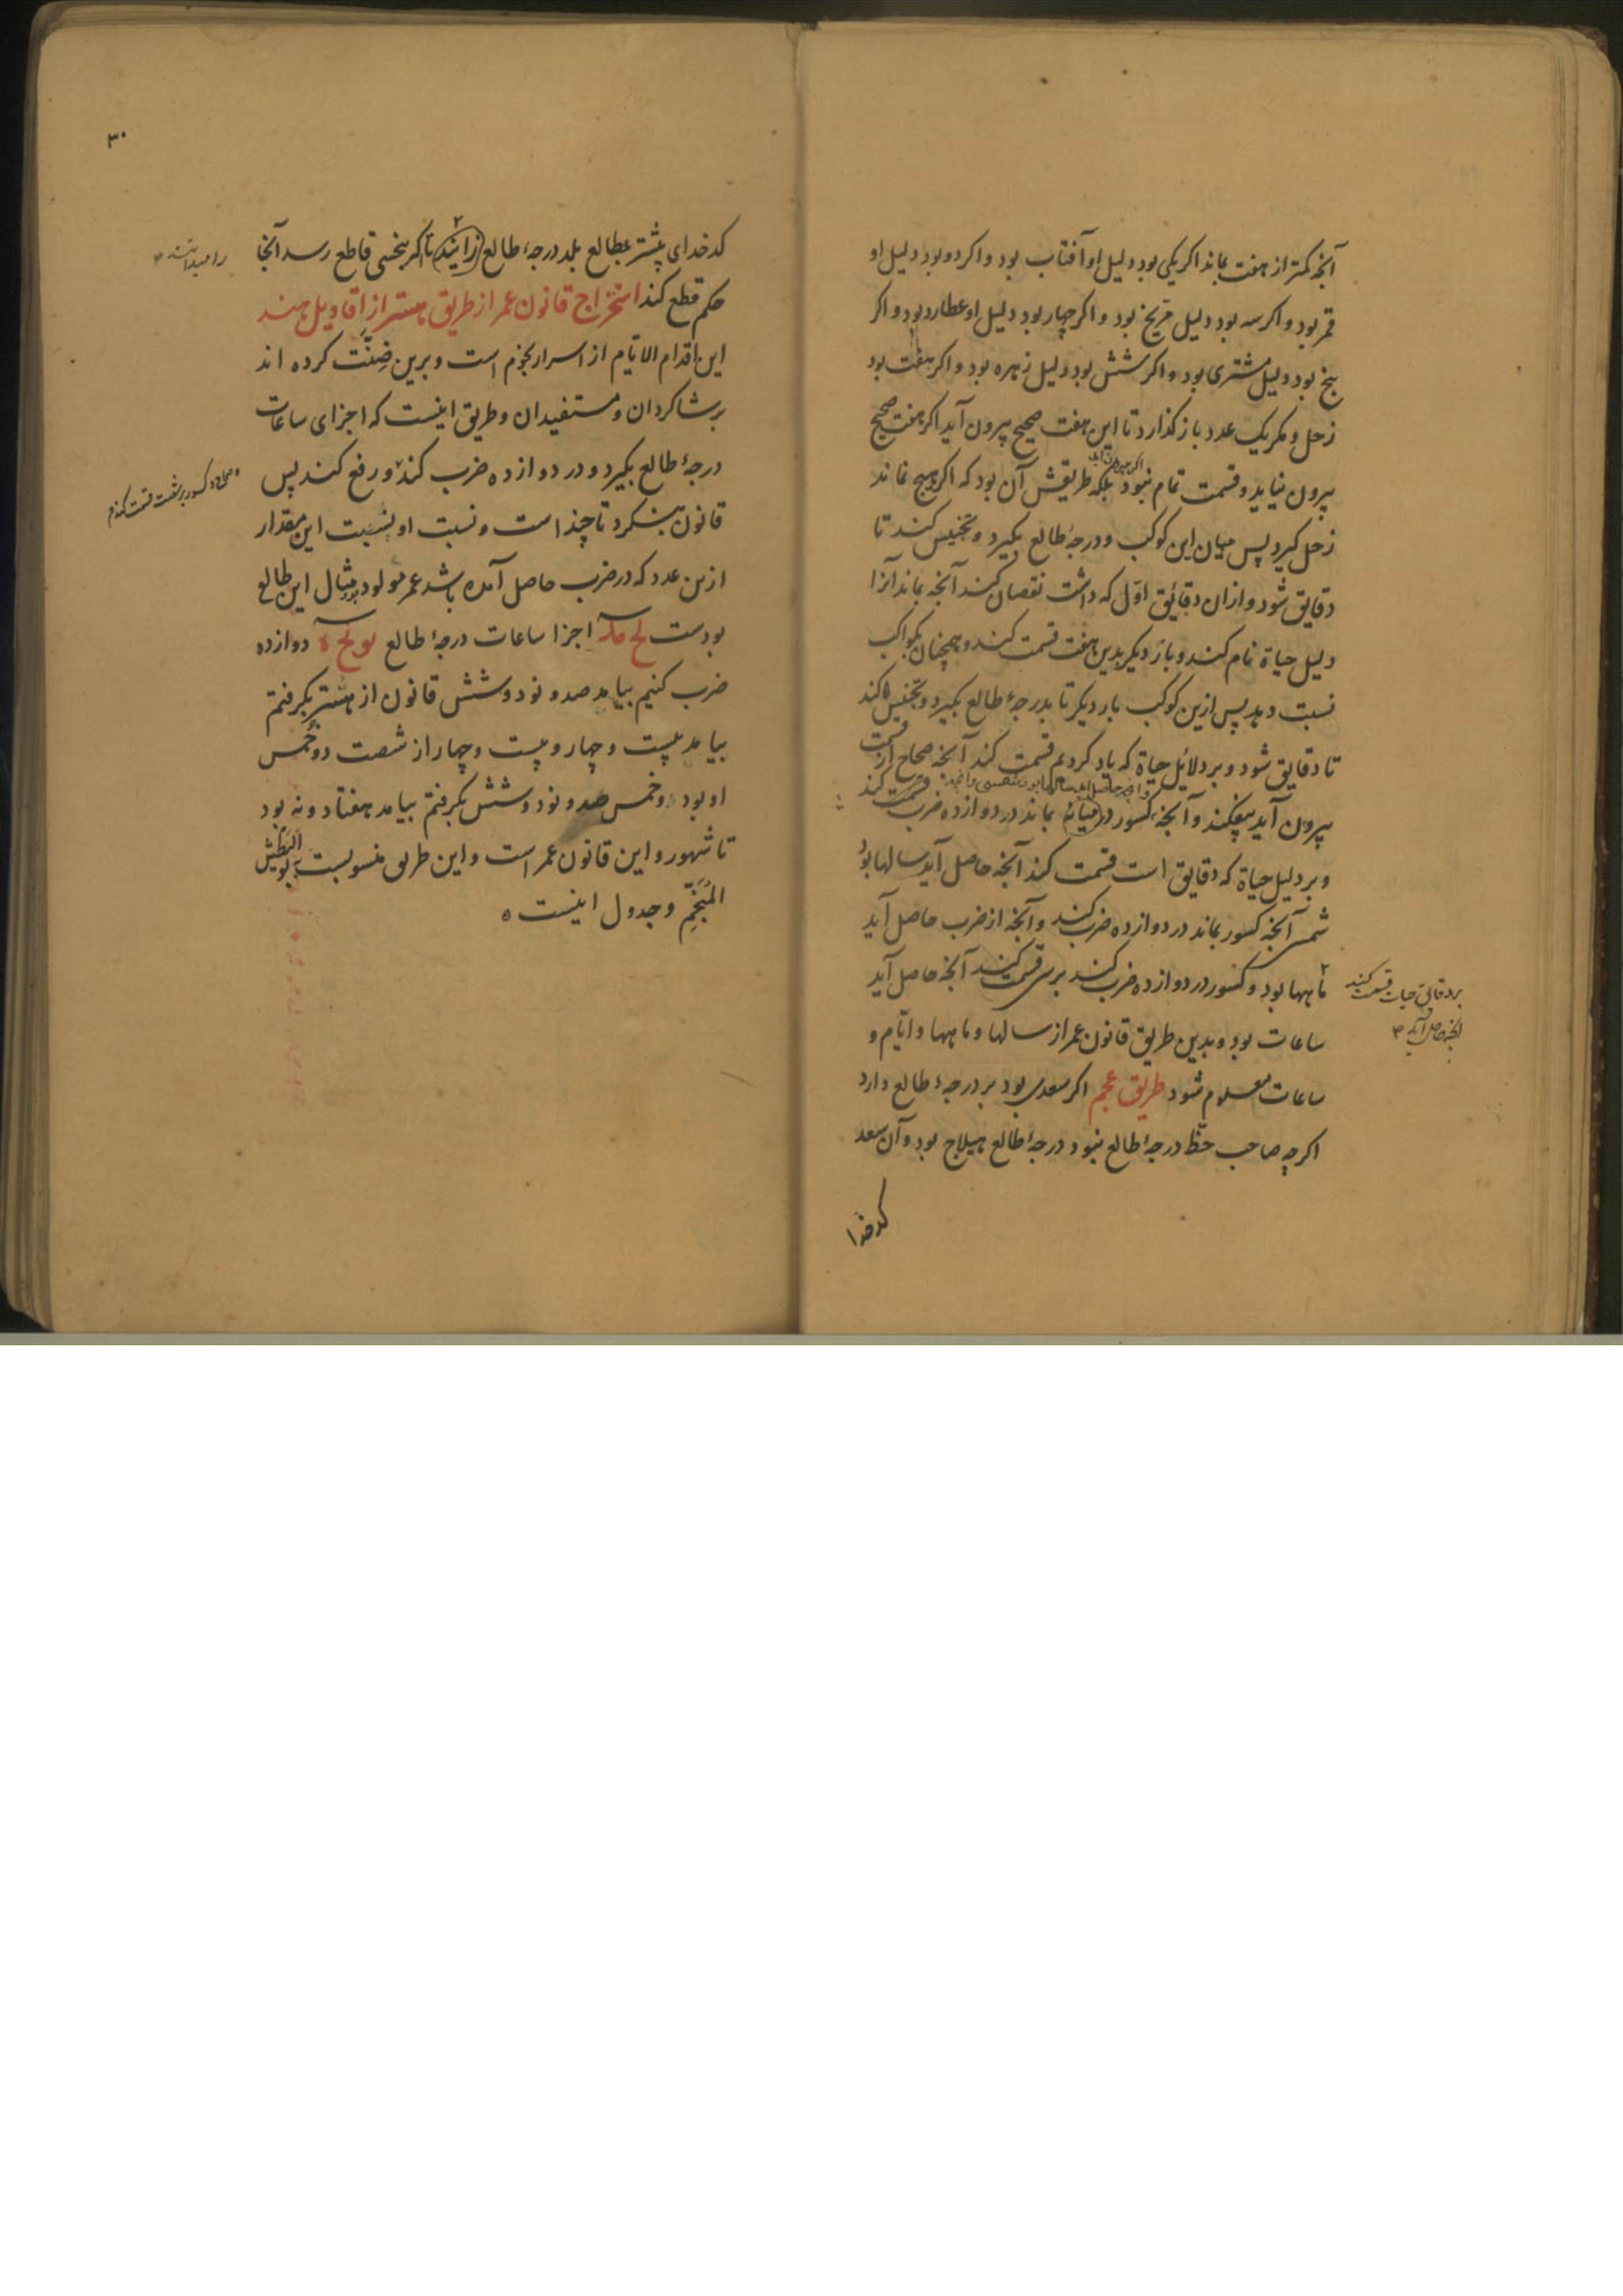 آنچه کمتر از هفت بماند اکر یکی بود دلیل او آفتاب بود و اکر دو بود دلیل او
قمر بود و اکر سه بود دلیل مریخ بود و اکر چهار بود دلیل او عطارد بود و اکر
پنج بود دلیل مشتری بود و اکر شش بود دلیل زهره بود و اکر هفت بود
زحل و مکر یک عدد باز کذارد تا این هفت صحیح بیرون آید اکر هفت صحیح
بیرون نیاید و قسمت تمام نبود بلکه طریقش آن بود که اکر هیچ نماند
زحل کیرد پس میان این کوکب و درجۀ طالع بکیرد و تجنیس کند تا
دقایق شود و ازان دقایق اول که داشت نقصان کند آنچه بماند آنرا
دلیل حیاة نام کند و بار دیکر بدین هفت قسمت کند و همچنان بکواکب
نسبت دهد پس ازین کوکب بار دیکر تا بدرجۀ طالع بکیرد و تجنیس کند
تا دقایق شود و بر دلائل حیاة که یاد کردیم قسمت کند آنچه صحاح از قسمت
بیرون آید بیفکند و آنچه کسور در میانه بماند در دوازده ضرب کند
و بر دلیل حیاة که دقایق است قسمت کند آنچه حاصل آید سالها بود
شمسی آنچه کسور بماند در دوازده ضرب کند و آنچه از ضرب حاصل آید
ماهها بود و کسور در دوازده ضرب کند برسی قسمت کند آنچه حاصل آید
بر دقایق حیات قسمت کند
آنچه حاصل آید
ساعات بود و بدین طریق قانون عمر از سالها و ماهها و ایام و
ساعات معلوم شود طریق عجم اکر سعدی بود بر درجۀ طالع دارد
اکرچه صاحب حظ درجۀ طالع نبود درجۀ طالع هیلاج بود و آن سعد
کدخدا
۳۰
کدخدای بیشتر بمطالع بلد درجۀ طالع را تا اکر بنحسی قاطع رسد آنجا
حکم قطع کند استخراج قانون عمر از طریق هستر از اقاویل هند
این اقدام الایام از اسرار نجوم است و برین ضنّت کرده اند
بر شاکردان و مستفیدان و طریق اینست که اجزای ساعات
درجۀ طالع بکیرد و در دوازده ضرب کند و رفع کند پس
قانون بنکرد تا چند است و نسبت او بشست این مقدار
ازین عدد که در ضرب حاصل آمده باشد عمر مولود بود مثال این طالع
بودست لح مه اجزا ساعات درجۀ طالع یو لح ه دوازده
ضرب کنیم بیامد صد و نود و شش قانون از هستر بکرفتم
بیامد بیست و چهار و بیست و چهار از شصت دو خمس
او بود دو خمس صد و نود و شش بکرفتم بیامد هفتاد و نه بود
تا شهور و این قانون عمر است و این طریق منسوبست بابو البطش
المنجّم و جدول اینست ه